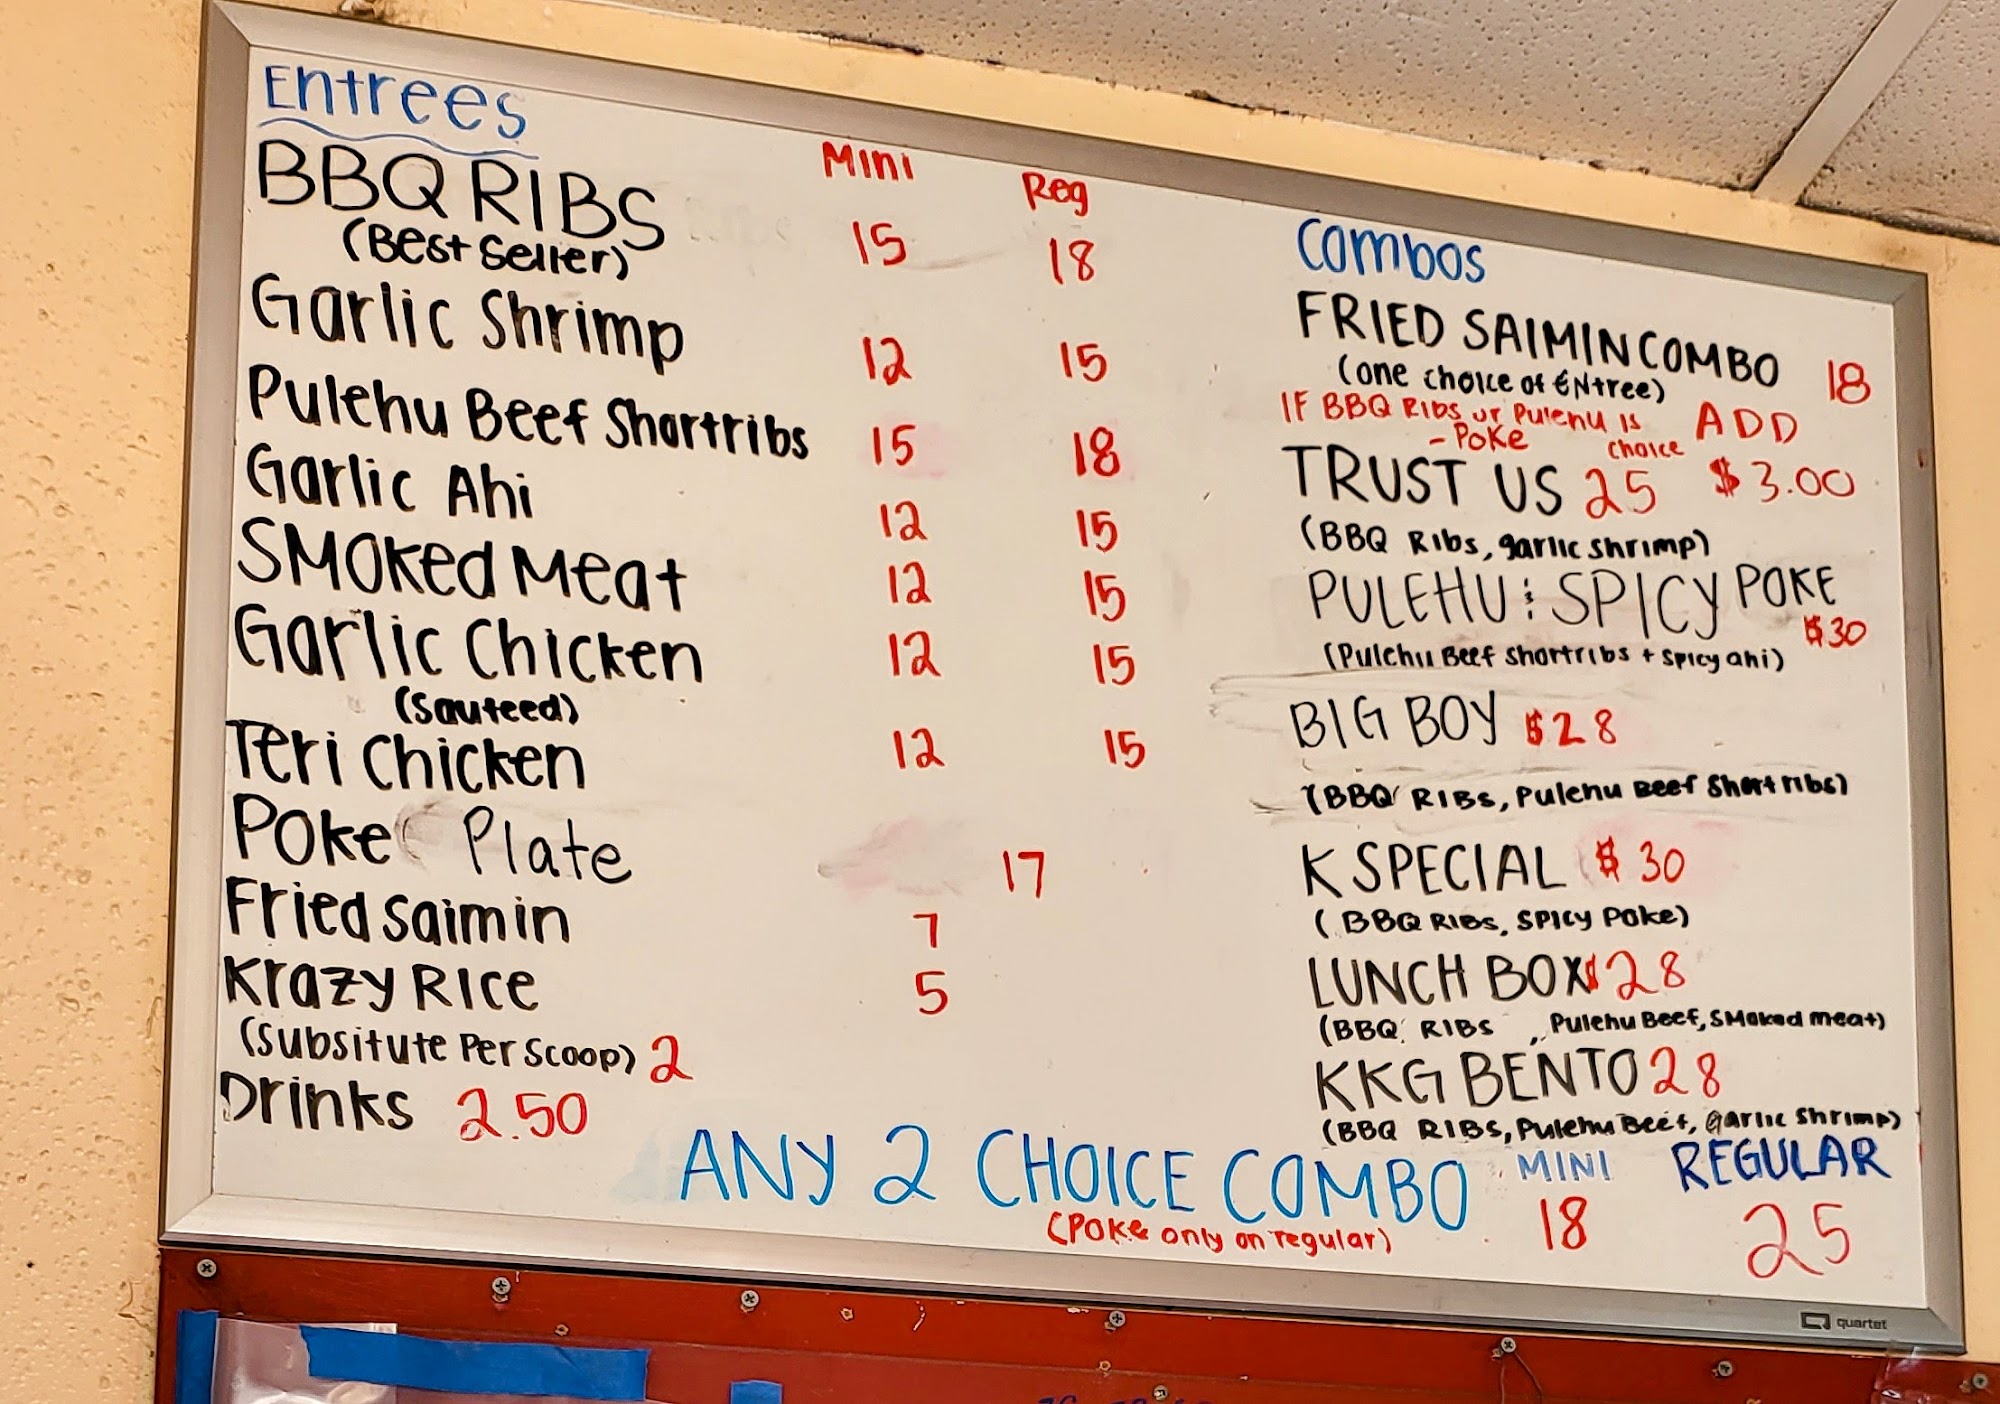 Entrees
Mini Reg
BBQ RIBS 15 18
(Best Seller)
Garlic Shrimp 12 15
Pulehu Beef Shortribs 15 18
Garlic Ahi 12 15
SMOKed Meat 12 15
Garlic Chicken 12 15
(Sauteed)
Teri Chicken 12 15
Poke Plate 17
Fried Saimin 7
Krazy Rice 5
(Subsitute Per Scoop) 2
Drinks 2.50
Combos
FRIED SAIMIN COMBO 18
(one choice of Entree)
IF BBQ Ribs or Pulehu is choice ADD $3.00
- Poke
TRUST US 25
(BBQ Ribs, garlic shrimp)
PULEHU & SPICY POKE $30
(Pulehu Beef Shortribs + Spicy ahi)
BIG BOY $28
(BBQ RIBS, Pulehu Beef Short ribs)
K SPECIAL $30
(BBQ RIBS, SPICY POKE)
LUNCH BOX $28
(BBQ RIBS, Pulehu Beef, SMoked meat)
KKG BENTO 28
(BBQ RIBS, Pulehu Beef, Garlic Shrimp)
ANY 2 CHOICE COMBO MINI REGULAR
(Poke only on regular) 18 25
quartet